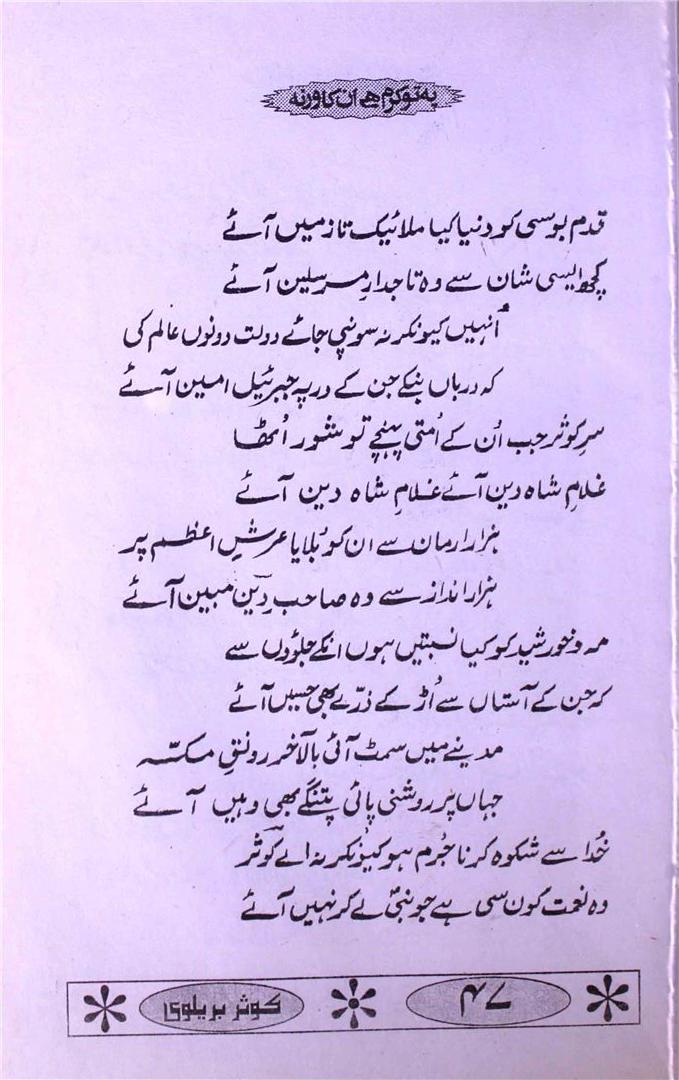 یہ تو کرم ہے ان کا ورنہ
قدم بوسی کو دنیا کیا ملائیک تاز میں آئے
کچھ ایسی شان سے وہ تاجدارِ مرسلین آئے
اُنہیں کیونکر نہ سونپی جائے دولت دونوں عالم کی
کہ درباں بنکے جن کے در پہ جبرئیل امین آئے
سرِ کوثر جب اُن کے اُمتی پہنچے تو شور اُٹھا
غلامِ شاہ دین آئے غلامِ شاہ دین آئے
ہزار ارمان سے ان کو بُلایا عرشِ اعظم پر
ہزار انداز سے وہ صاحبِ دین مبین آئے
مہ و خورشید کو کیا نسبتیں ہوں انکے جلوؤں سے
کہ جن کے آستاں سے اُڑ کے ذرّے بھی حسیں آئے
مدینے میں سمٹ آئی بالآخر رونقِ مکّہ
جہاں پر روشنی پائی پتنگے بھی وہیں آئے
خُدا سے شکوہ کرنا جُرم ہو کیونکر نہ اے کوثر
وہ نعمت کون سی ہے جو نبیؐ لے کر نہیں آئے
۴۷
کوثر بریلوی